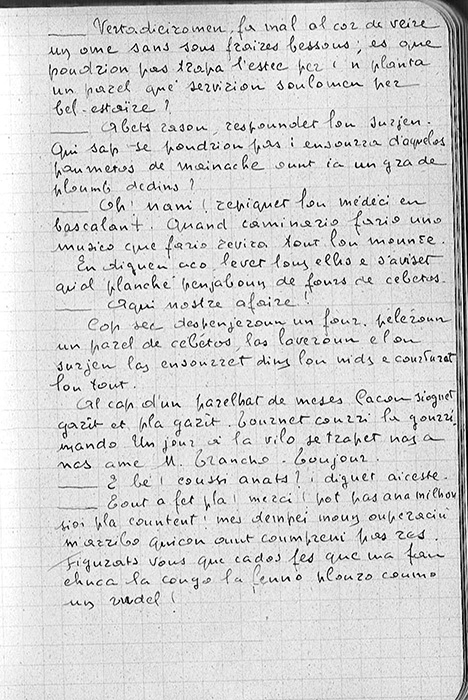 ___ Vertadieiromen, fa mal al cor de veire
un ome sans sous fraires bessous; es que
poudrion pas trapa l'estec per i'n planta
un parel que servirion soulomen per
bel-estaire?
___ Abets rason, respoundet lou surjen.
Qui sap se poudrion pas i ensourra d'aquelos
paumetos de mainache ount ia un gra de
ploumb dedins?
___ Oh! nani! repiquet lou médeci en
bascalant. Quand caminario fario uno
musico que fario revira tout lou mounde.
En diguen aco, levet lous ellhs e s'aviset
qu'al planche penjaboun de fours de cebetos.
___ Aqui nostre afaire!
Cop sec despenjeroun un four, peleroun
un parel de cebetos, las laveroun e lou
surjen las ensourret dins lou nids e courdurat
lou tout.
Al cap d'un parelhat de meses Cacou siognet
garit et pla garit. Tournet courri la gourri-
mando. Un jour à la vilo se trapet nas a
nas ame M. Trancho. Boujour.
___ E be! coussi anats? i diguet aiceste.
___ Tout a fet pla! merci! pot pas ana milhou
sioi pla countent! mes dempei mous ouperaciu
m'arribo quicon ount coumpreni pas res.
Figurats vous que cados fes que ma fenno
chuca la coungo la fenno plouro coumo
un vudel!